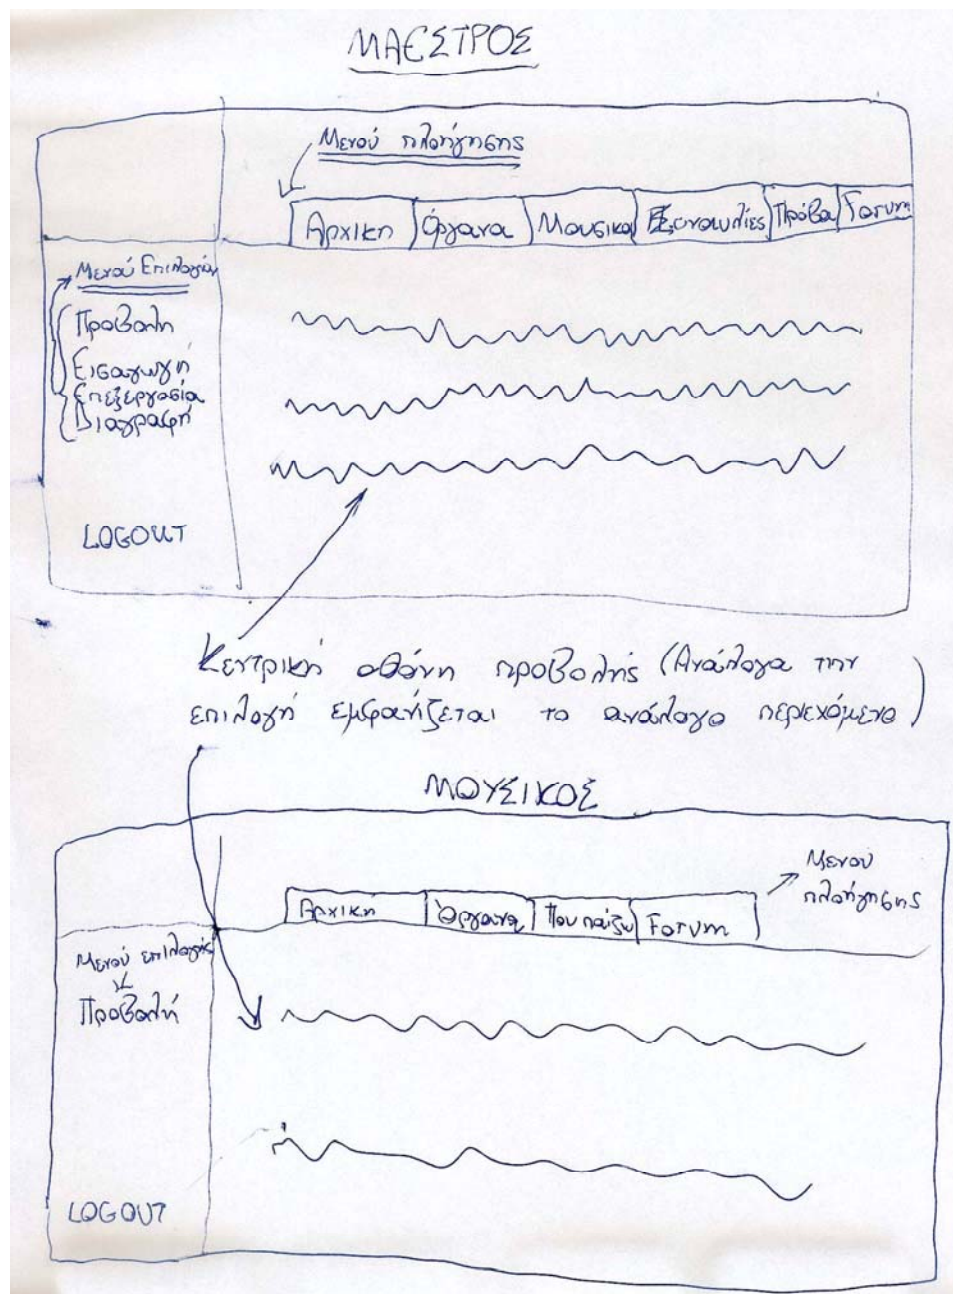 ΜΑΕΣΤΡΟΣ
Μενού πλοήγησης
Αρχικη Όργανα Μουσικοί Πρόβα Forum
Μενού Επιλογών
Προβολη
Εισαγωγή
Επεξεργασία
Διαγραφή
LOGOUT
Κεντρική οθόνη προβολής (Ανάλογα την
επιλογή εμφανίζεται το ανάλογο περιεχόμενο)
ΜΟΥΣΙΚΟΣ
Μενού
πλοήγησης
Αρχικη Όργανα Που παίζω Forum
Μενού επιλογής
Προβολή
LOGOUT